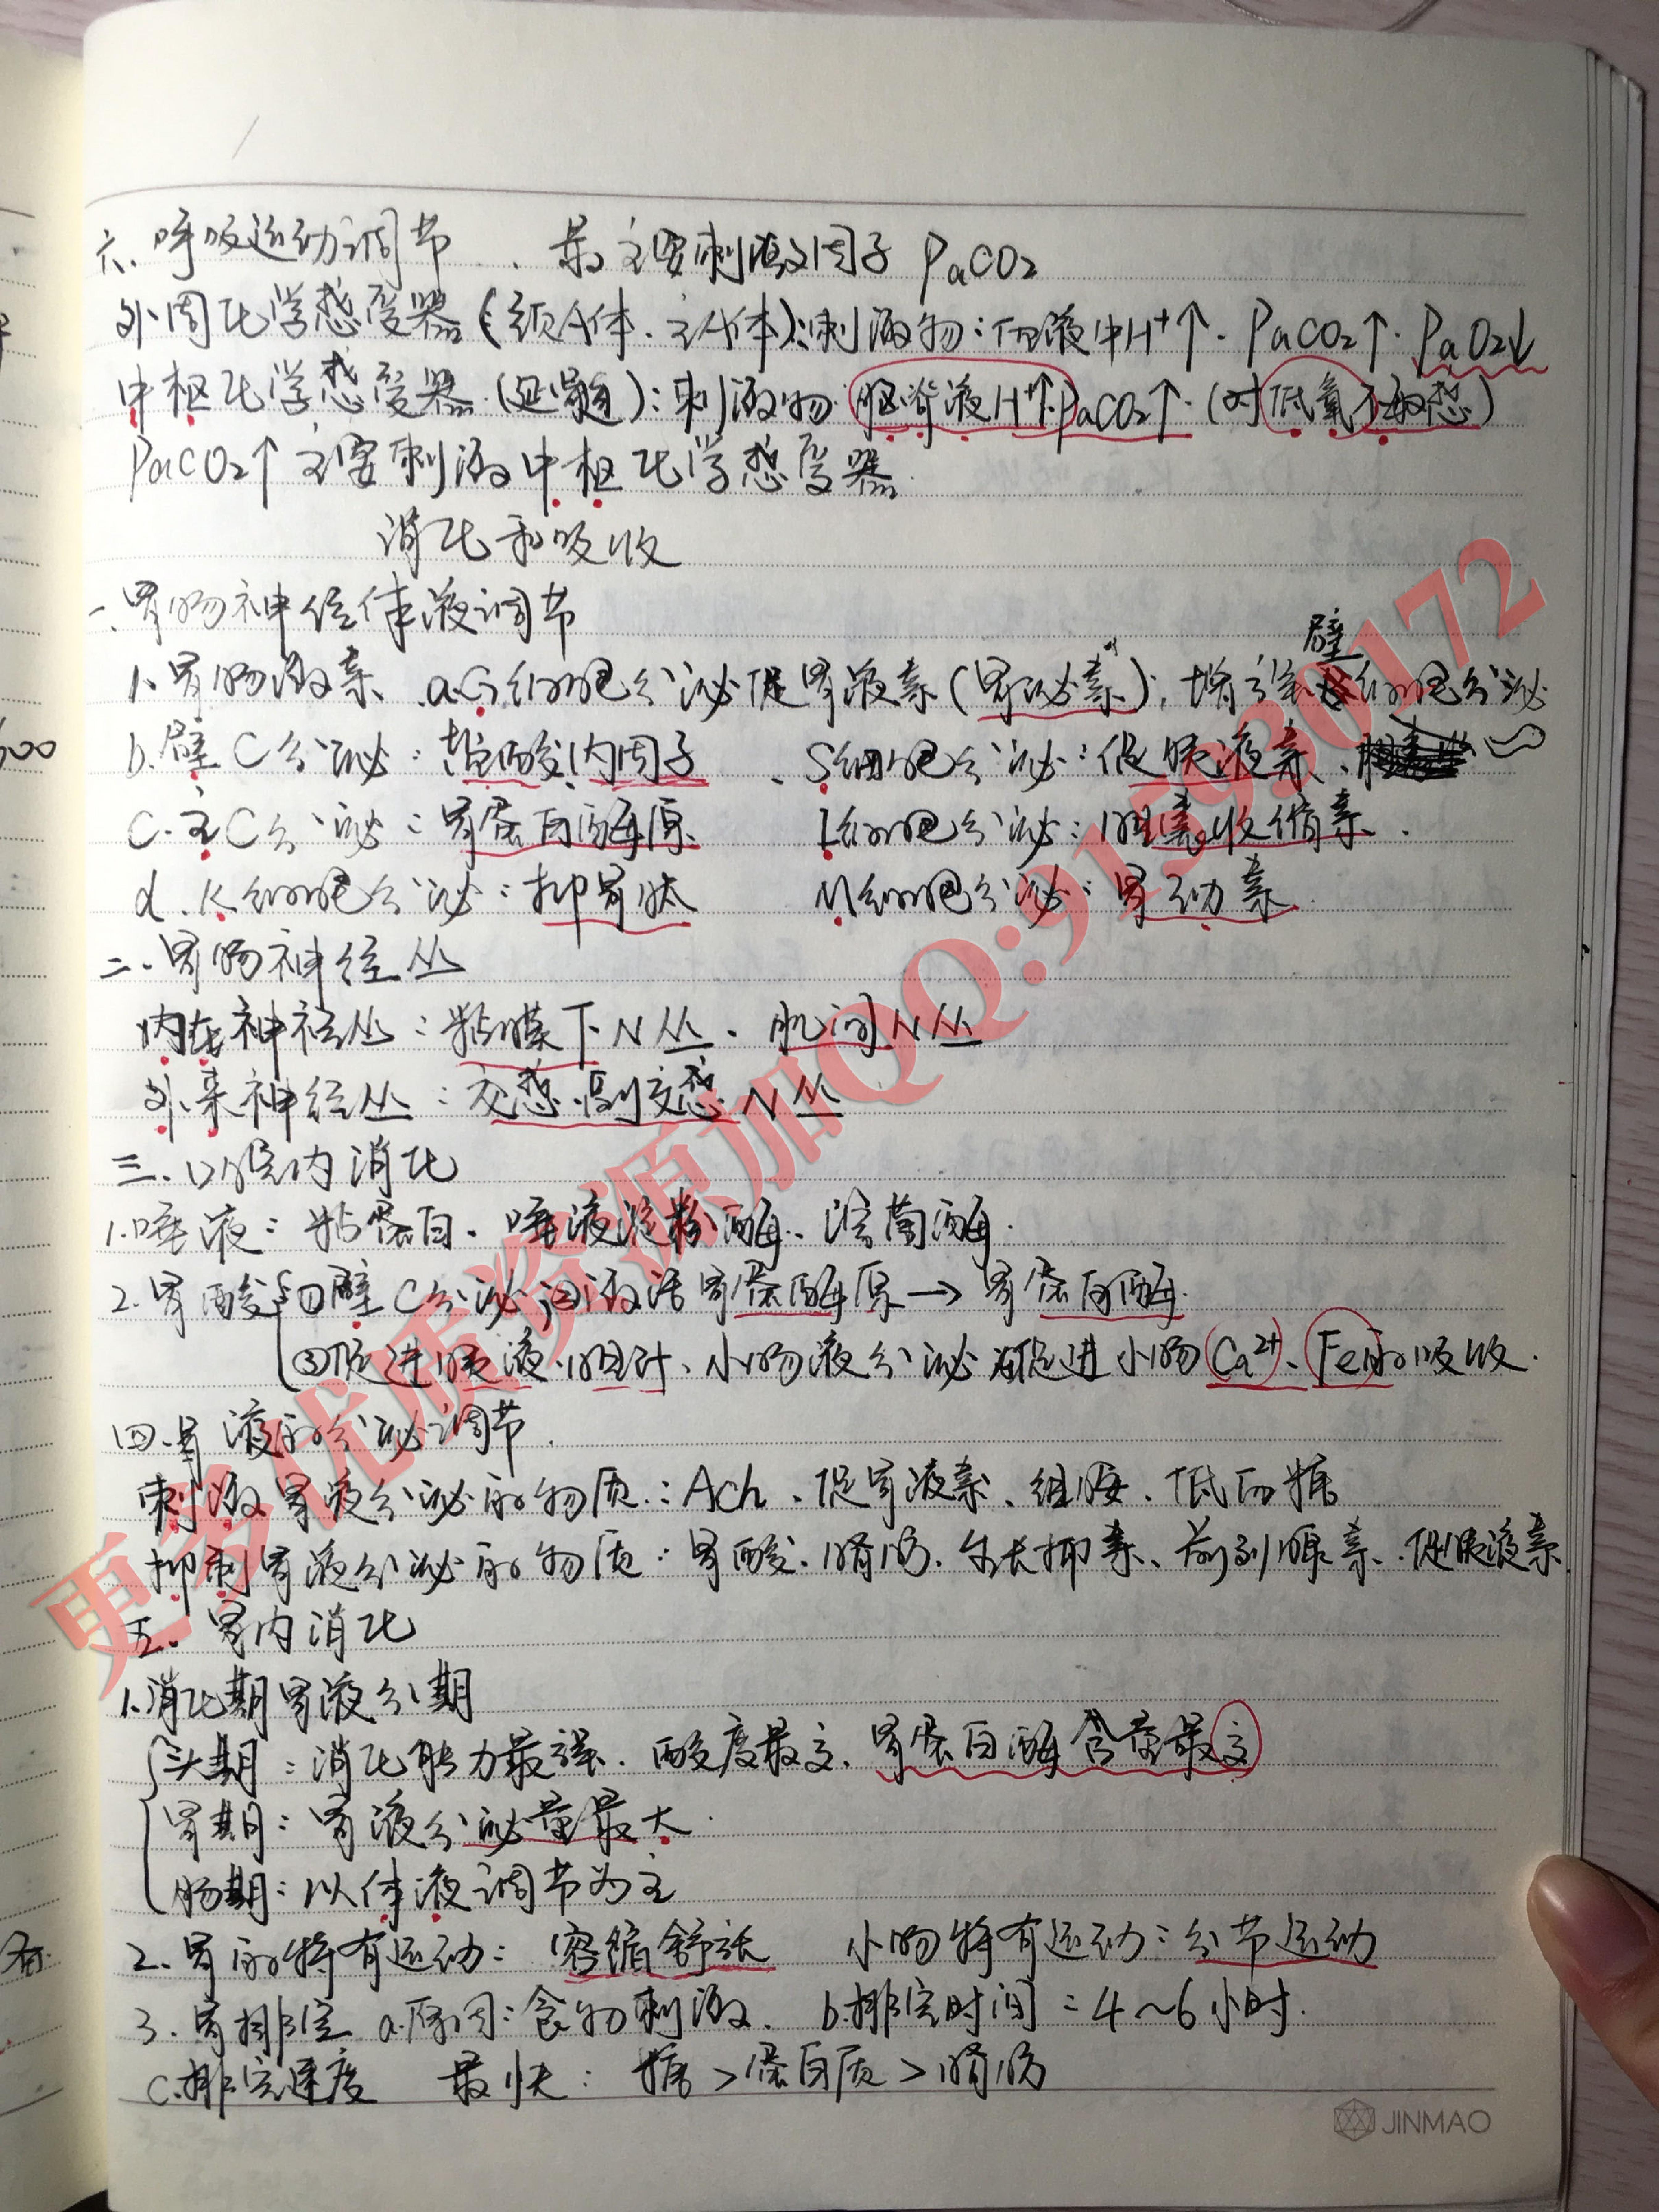 六、呼吸运动调节 . 最主要刺激因子 PaCO2
外周化学感受器(颈A体.主A体):刺激物:血液中H+↑. PaCO2↑. PaO2↓
中枢化学感受器.(延髓):刺激物 脑脊液H+↑.PaCO2↑.(对低氧不敏感)
PaCO2↑主要刺激中枢化学感受器.
消化和吸收
一.胃肠神经体液调节
1、胃肠激素、a.G细胞分泌促胃液素(胃泌素);增强壁细胞分泌
b.壁C分泌:盐酸、内因子 、S细胞分泌:促胰液素、
C.主C分泌:胃蛋白酶原. I细胞分泌:胆囊收缩素.
d.K细胞分泌:抑胃肽 M细胞分泌:胃动素.
二、胃肠神经丛
内在神经丛:粘膜下N丛、肌间N丛
外来神经丛:交感.副交感N丛
三、口腔内消化
1.唾液:粘蛋白、唾液淀粉酶、溶菌酶.
2.胃酸 ①壁C分泌;②激活胃蛋酶原→胃蛋白酶.
③促进胰液.胆汁、小肠液分泌 ④促进小肠Ca2+、Fe的吸收.
四.胃液的分泌调节.
刺激胃液分泌的物质:Ach、促胃液素、组胺、低血糖
抑制胃液分泌的物质:胃酸.脂肪.生长抑素、前列腺素、促胰液素.
五、胃内消化
1.消化期胃液分期
头期:消化能力最强.酸度最高、胃蛋白酶含量最高
胃期:胃液分泌量最大.
肠期:以体液调节为主
2、胃的特有运动:容缩舒张 小肠特有运动:分节运动
3.胃排空 a.原因:食物刺激. b.排空时间:4~6小时.
c.排空速度 最快:糖>蛋白质>脂肪
JINMAO
更多优质资源加QQ:915930172